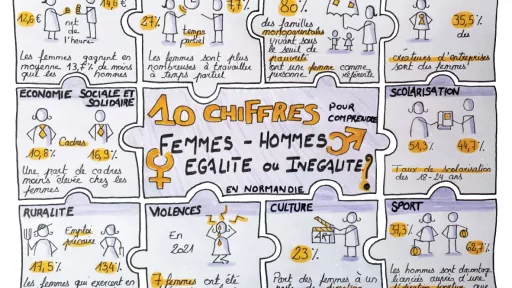 12,6€
14,6€
net de
l'heure
Les femmes gagnent en
moyenne 13,7% de moins
que les hommes
27%
7,7%
temps
partiel
Les femmes sont plus
nombreuses à travailler
à temps partiel
80%
des familles
monoparentales
vivant sous
le seuil de
pauvreté
ont une femme comme
personne référente
35,5%
des
créateurs d'entreprises
sont des femmes!
ECONOMIE SOCIALE ET
SOLIDAIRE
Cadres
10,8%
16,9%
Une part de cadres
moins élevée chez les
femmes
10 CHIFFRES
POUR
COMPRENDRE
FEMMES - HOMMES
EGALITE OU INEGALITE?
EN NORMANDIE
SCOLARISATION
51,3%
44,7%
Taux de scolarisation
des 18-24 ans
RURALITE
Emploi
précaire
17,5%
13,4%
Les femmes qui exercent en
VIOLENCES
En
2021
7 femmes ont été
CULTURE
ART
23%
Part des femmes à un
SPORT
37,3%
62,7%
Les hommes sont davantage
licenciés auprès d'une